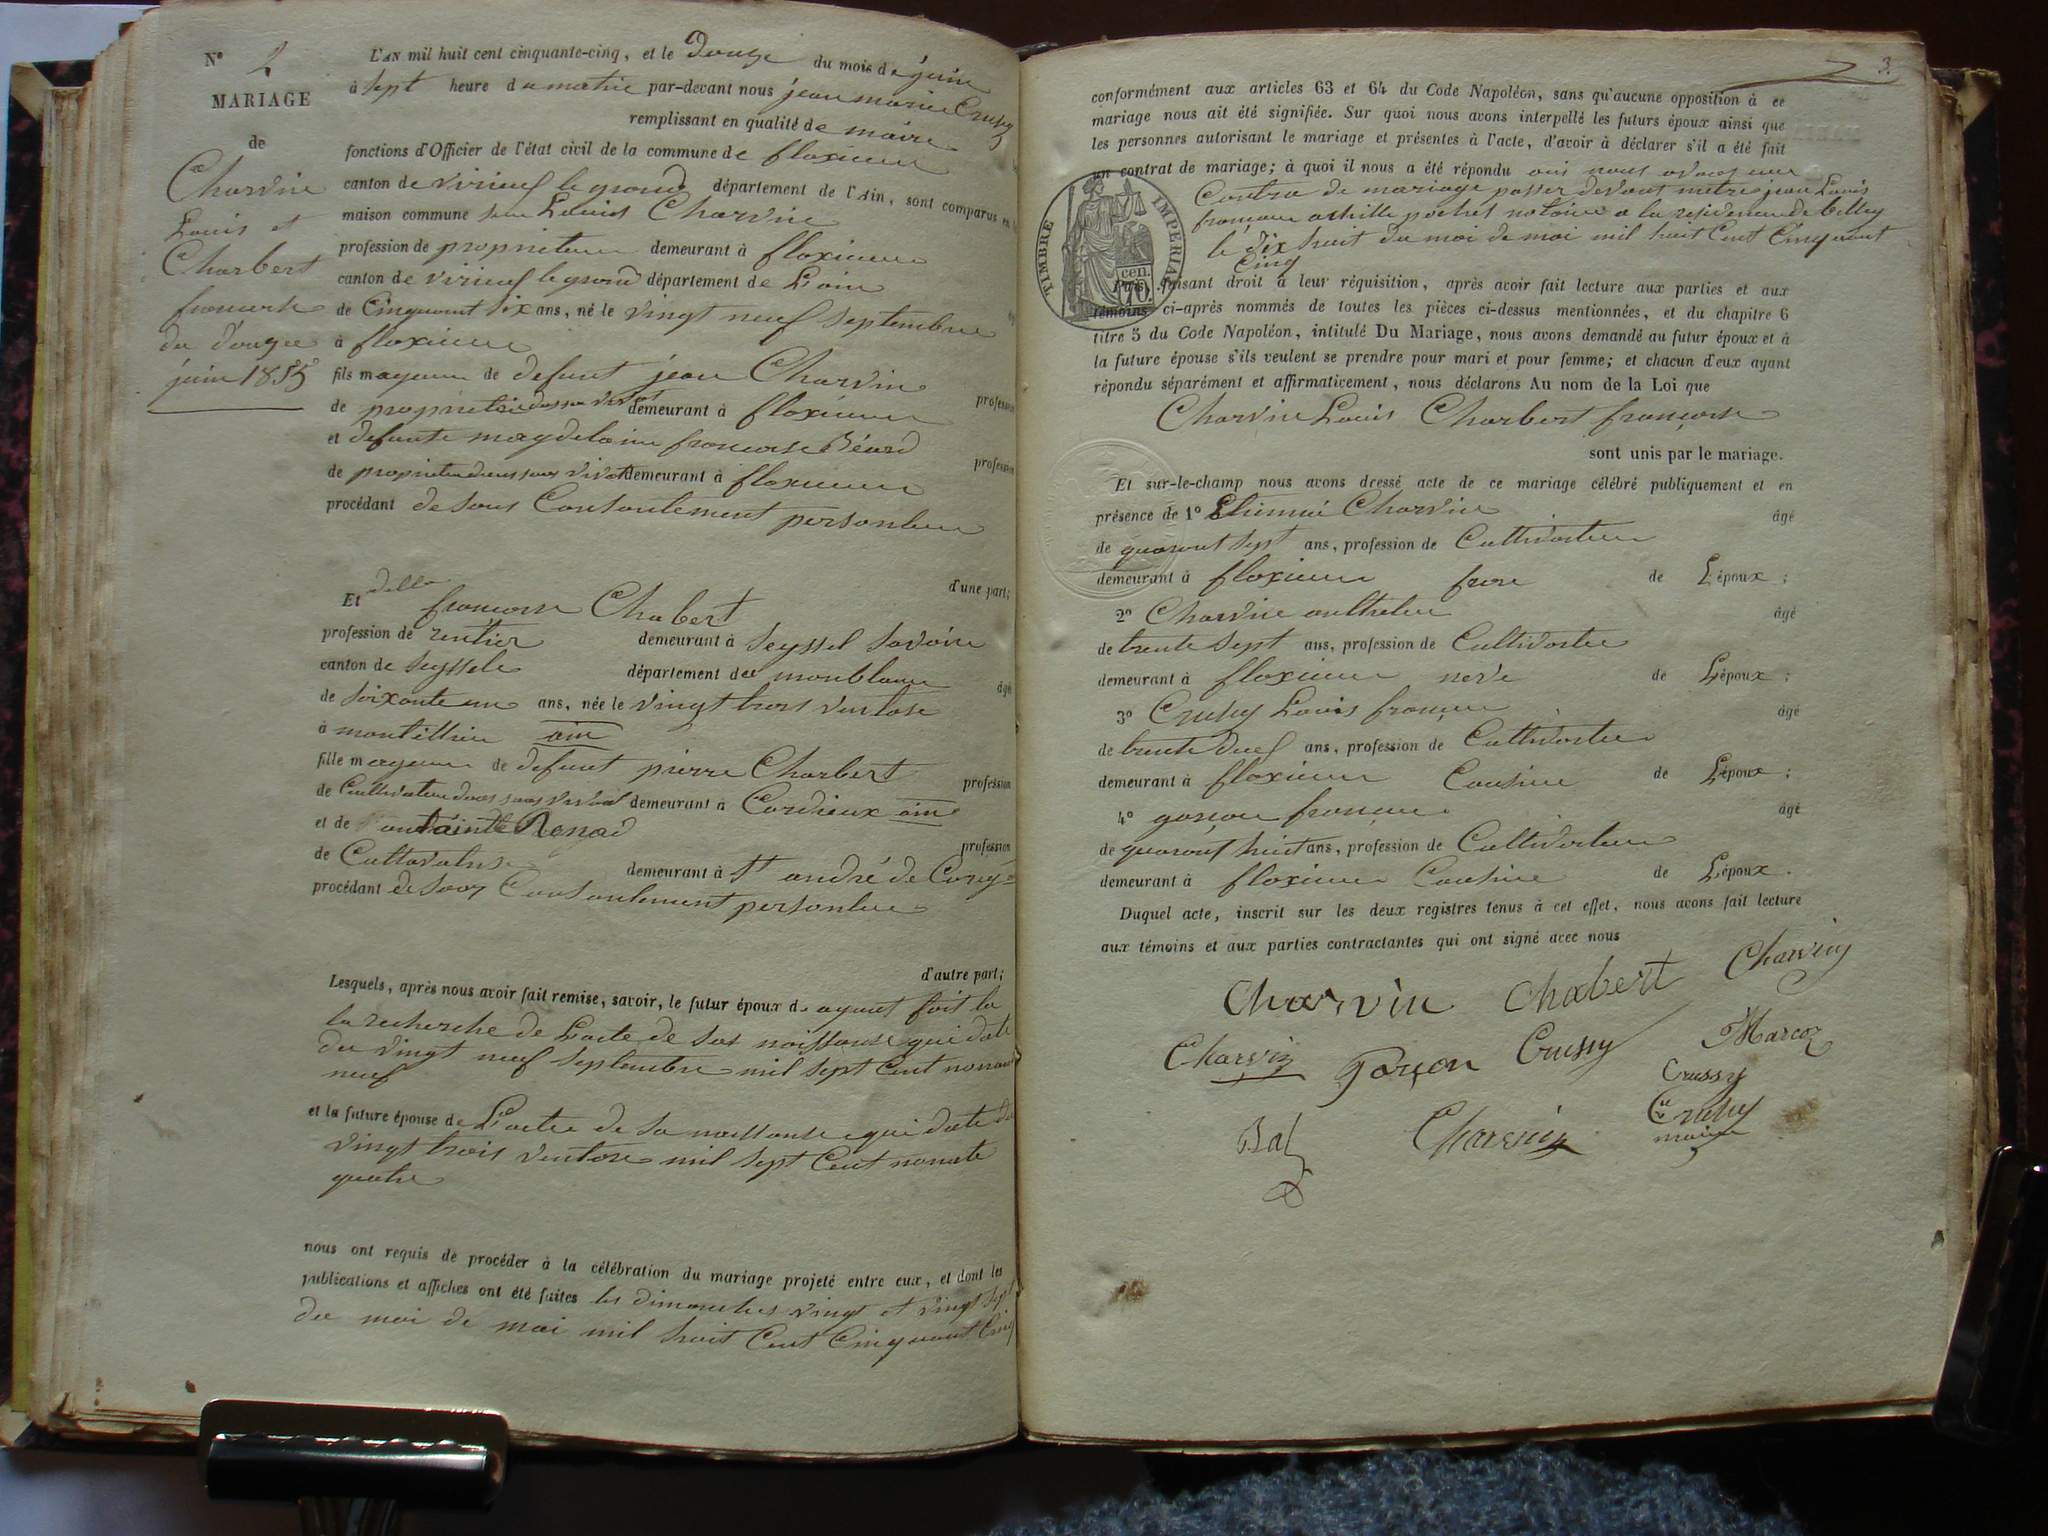 N° 2
MARIAGE
de
Charvin
Louis et
Charbert
francoise
du douze
juin 1855
L'AN mil huit cent cinquante-cinq, et le douze du mois de juin
à sept heure du matin par-devant nous jean marie Cruhy
remplissant en qualité de maire
fonctions d'Officier de l'état civil de la commune de flaxieux
canton de virieux le grand département de l'Ain, sont comparus en la
maison commune Louis Charvin
profession de proprieteur demeurant à flaxieux
canton de virieux le grand département de L'ain
de Cinquant six ans, né le vingt neuf septembre
à flaxieux
fils mageur de defunt jean Charvin
de demeurant à flaxieux profession
et defunte magdelaine francoise Bénard
de demeurant à flaxieux profession
procédant de sous Consontement personlun
d'une part;
Et della francoise Chabert
profession de rentier demeurant à Seyssel Savoie
canton de Seyssele département de monblanc
de soixante un ans, née le vingt trois ventose âgé
à montellier ain
fille mageure de defunt pierre Charbert
de demeurant à Cordieux ain profession
et de
de demeurant à St andré de Corcy profession
procédant de Consontement personlun
d'autre part;
Lesquels, après nous avoir fait remise, savoir, le futur époux de ayant fait la
la recherche de Lacte de sas naissanse qui date
du vingt neuf septembre mil sept Cent nonant
neuf
et la future épouse de L'actee de sa naissanse qui date du
vingt trois ventose mil sept Cent nonate
quatre
nous ont requis de procéder à la célébration du mariage projeté entre eux, et dont les
publications et affiches ont été faites les dimanches vingt et vingt sept
du moi de mai mil huit Cent Cinquant Cinq
3.
conformément aux articles 63 et 64 du Code Napoléon, sans qu'aucune opposition à ce
mariage nous ait été signifiée. Sur quoi nous avons interpellé les futurs époux ainsi que
les personnes autorisant le mariage et présentes à l'acte, d'avoir à déclarer s'il a été fait
un contrat de mariage; à quoi il nous a été répondu oui nous avons un
Contra de mariage passer devant metre jean Louis
françois achille pochet notaire a la residence de Culloz
le dix huit du moi de mai mil huit Cent Cinquant
Cinq
TIMBRE IMPERIAL
cen.
70.
Puis, faisant droit à leur réquisition, après avoir fait lecture aux parties et aux
témoins ci-après nommés de toutes les pièces ci-dessus mentionnées, et du chapitre 6
titre 5 du Code Napoléon, intitulé Du Mariage, nous avons demandé au futur époux et à
la future épouse s'ils veulent se prendre pour mari et pour femme; et chacun d'eux ayant
répondu séparément et affirmativement, nous déclarons Au nom de la Loi que
Charvin Louis Charbert françoise
sont unis par le mariage.
Et sur-le-champ nous avons dressé acte de ce mariage célébré publiquement et en
présence de 1° Charvin âgé
de quarant sept ans, profession de Cultivateur
demeurant à flaxieux frere de L'époux;
2° Charvin anthelme âgé
de trente sept ans, profession de Cultivateur
demeurant à flaxieux nevé de L'époux;
3° Cruhy Louis francois âgé
de trente dues ans, profession de Cultivateur
demeurant à flaxieux Cousin de L'époux;
4° garson francois âgé
de quarant huit ans, profession de Cultivateur
demeurant à flaxieux Cousin de L'époux.
Duquel acte, inscrit sur les deux registres tenus à cet effet, nous avons fait lecture
aux témoins et aux parties contractantes qui ont signé avec nous
Charvin Chabert Charvin
Charvin Garçon Crussy Marcoz
Crussy
Bal Charvin Cruhy
maire